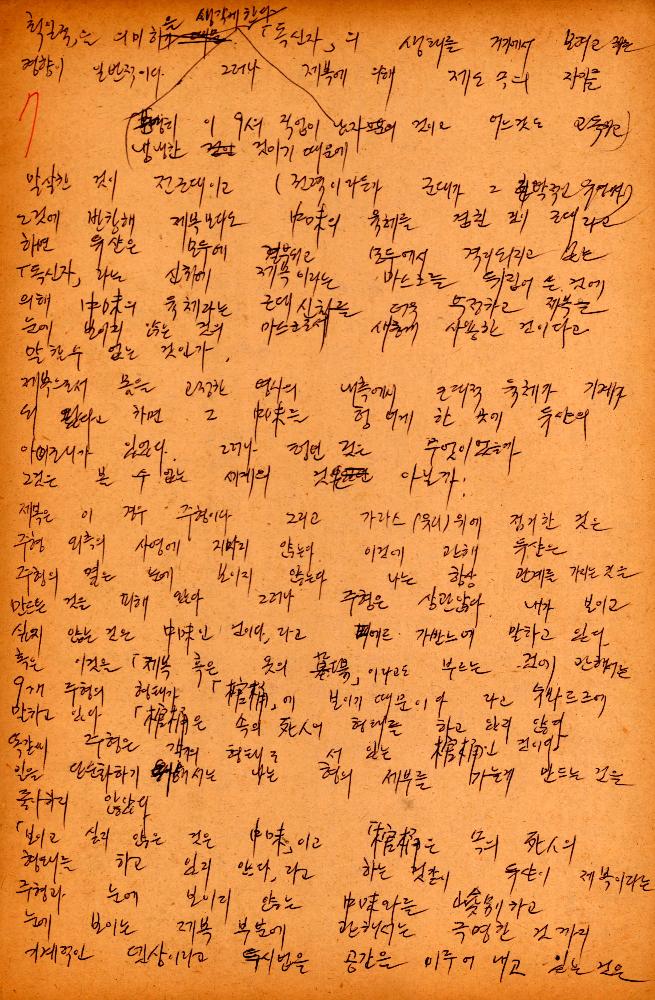 획일적,을 의미하 생각에 찬 「독신자」의 생태를 거기에서 보려고 하는
경향이 일반적이다. 그러나 제복에 의해 제도 속의 자임을
7
이 9의 직업이 남자의 것이고 어느것도 고독하고
냉냉한 것이기 때문에
말살한 것이 전근대이고 (권력이라든가 근대가 그
그것에 반항해 제복보다도 中味의 육체를 점친 것이 근대라고
하면 뒤샹은 모두에 결부되고 모두에서 격리되려고
「독신자」라는 신화에 제복이라는 마스크를 뒤집어 쓴 것에
의해 中味의 육체라는 근대신화를 더욱 부정하고 제복을
눈에 보이지 않는 것의 마스크로서 새롭게 사용한 것이다고
말할 수 없는 것인가.
제복으로서 몸을 고정한 역사의 내측에서 근대적 육체가 기계가
되 하면 그 中味를 텅 비게 한 곳에 뒤샹의
아이러니가 있었다. 그러나 정면 것은 무엇이었을까
그것은 볼 수 없는 세계의 것 아닐까.
제복은 이 경우 주형이다 그리고 가라스(유리)위에 정착한 것은
주형 외측의 사영에 지나지 않는다 이것에 관해 뒤샹은
주형의 옆은 눈에 보이지 않는다 나는 항상 관계를 가지는 것을
만드는 것을 피해 왔다 그러나 주형은 상관없다 내가 보이고
싶지 않는 것은 中味인 것이다,라고 피에르 가반느에 말하고 있다
혹은 이것을 「제복 혹은 옷의 墓場」이라고도 부르는 것에 관해서는
9개 주형의 형태가 「棺桶」에 보이기 때문이다 라고 슈바르츠에
말하고 있다 「棺桶은 속의 死人의 형태를 하고 있지 않다
똑같이 주형은 각각 형태로 서 있는 棺桶인 것이다
인을 단순화하기 위해서는 나는 형의 세부를 가늘게 만드는 것을
좋아하지 않았다
「보이고 싶지 않은 것은 中味」이고 「棺桶은 속의 死人의
형태를 하고 있지 않다,라고 하는 것같이 뒤샹이 제복이라는
주형과 눈에 보이지 않는 中味와를 峻別하고
눈에 보이는 제복 부분에 관해서는 극명한 것까지
기계적인 연상이라고 투시법을 공간을 이루어 내고 있는 것은